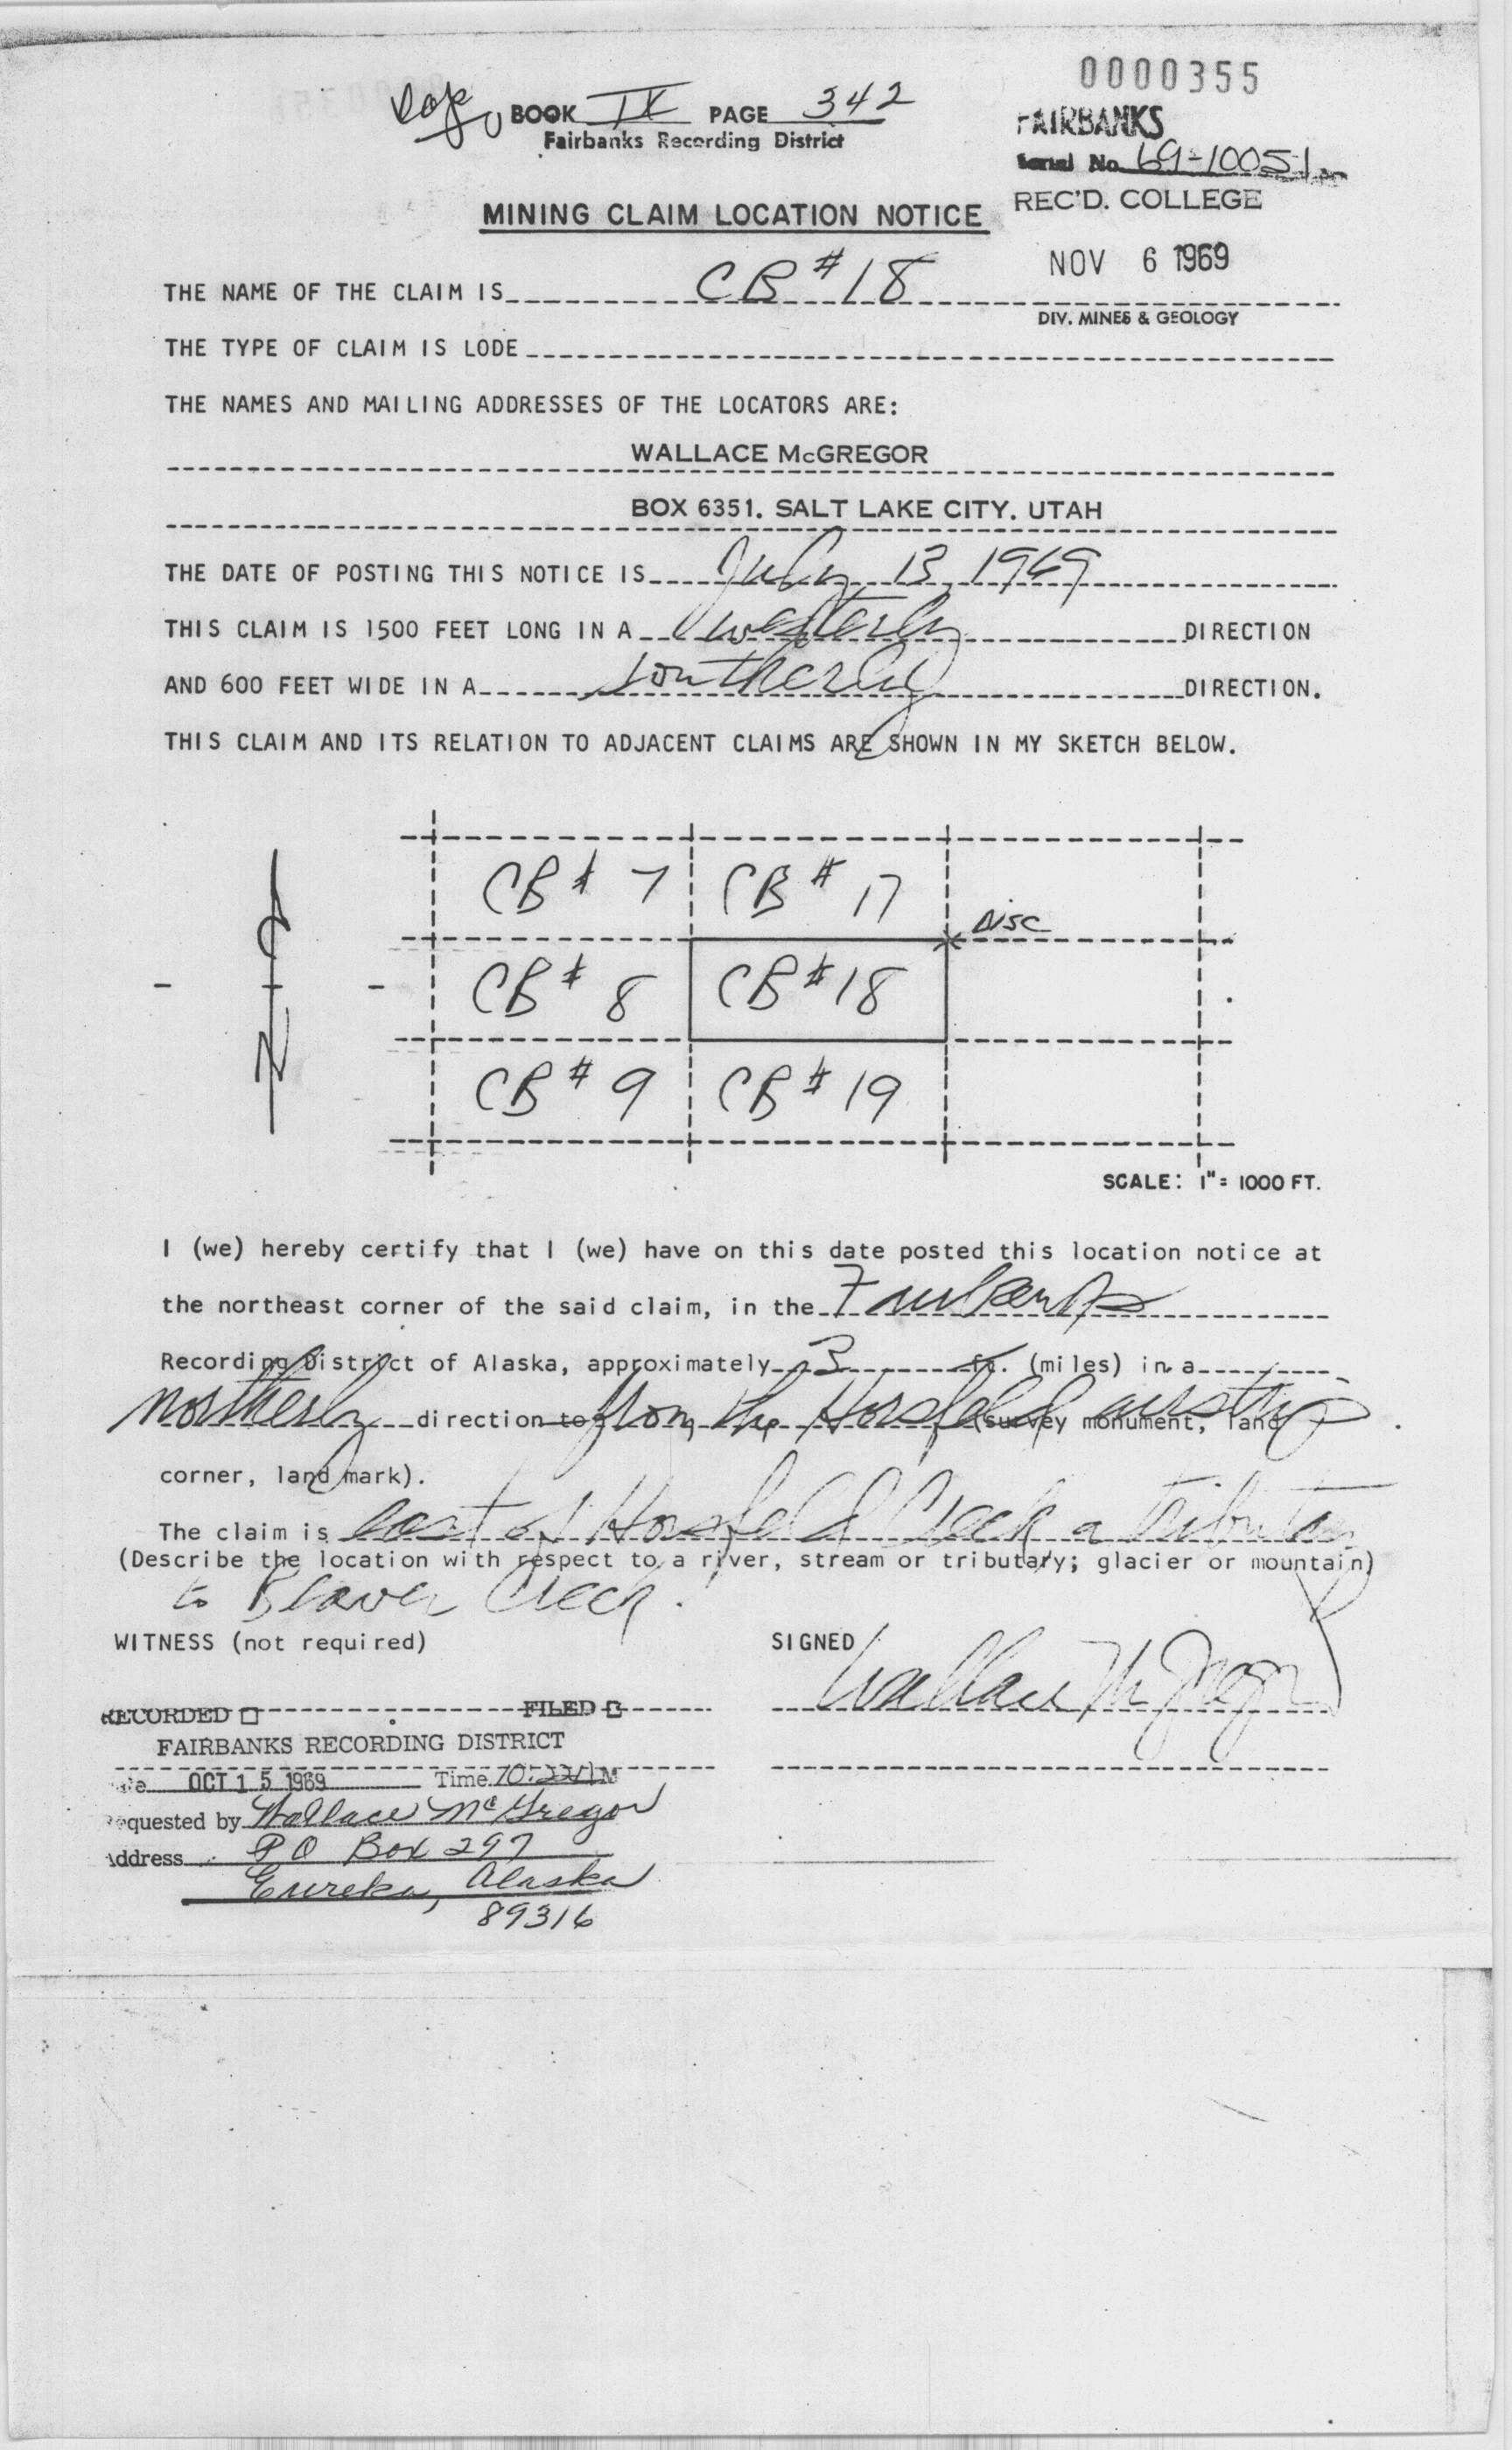 0000355
BOOK IX PAGE 342
Fairbanks Recording District
FAIRBANKS
Serial No. 69-10051
REC'D. COLLEGE
MINING CLAIM LOCATION NOTICE
NOV 6 1969
THE NAME OF THE CLAIM IS CB #18
DIV. MINES & GEOLOGY
THE TYPE OF CLAIM IS LODE
THE NAMES AND MAILING ADDRESSES OF THE LOCATORS ARE:
WALLACE McGREGOR
BOX 6351. SALT LAKE CITY. UTAH
THE DATE OF POSTING THIS NOTICE IS July 13, 1969
THIS CLAIM IS 1500 FEET LONG IN A westerly DIRECTION
AND 600 FEET WIDE IN A southerly DIRECTION.
THIS CLAIM AND ITS RELATION TO ADJACENT CLAIMS ARE SHOWN IN MY SKETCH BELOW.
CB # 7 CB # 17
DISC
CB # 8 CB # 18
N
CB # 9 CB # 19
SCALE: 1" = 1000 FT.
I (we) hereby certify that I (we) have on this date posted this location notice at
the northeast corner of the said claim, in the Fairbanks
Recording District of Alaska, approximately 3 ft. (miles) in a
northerly direction to from the Horsfeld airstrip (survey monument, land
corner, land mark).
The claim is east of Horsfeld Creek a tributary
(Describe the location with respect to a river, stream or tributary; glacier or mountain)
to Beaver Creek.
WITNESS (not required) SIGNED
Wallace McGregor
RECORDED FILED
FAIRBANKS RECORDING DISTRICT
Date OCT 15 1969 Time M
Requested by Wallace McGregor
Address P O Box 297
Eureka, Alaska
89316